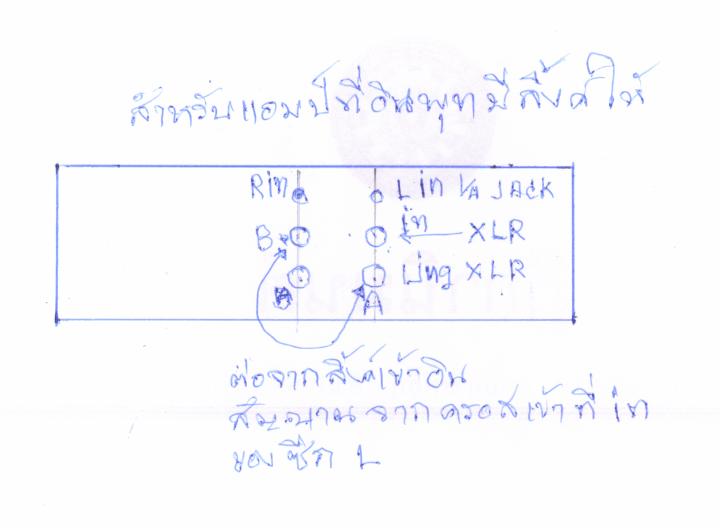 สำหรับแอมป์ที่อินพุทมีลิ้งค์ให้
Rin L in 1/4 JACK
B in XLR
Ling XLR
A A
ต่อจากลิ้งค์เข้าอิน
สัญญานจากครอสเข้าที่ in
ของซีก L